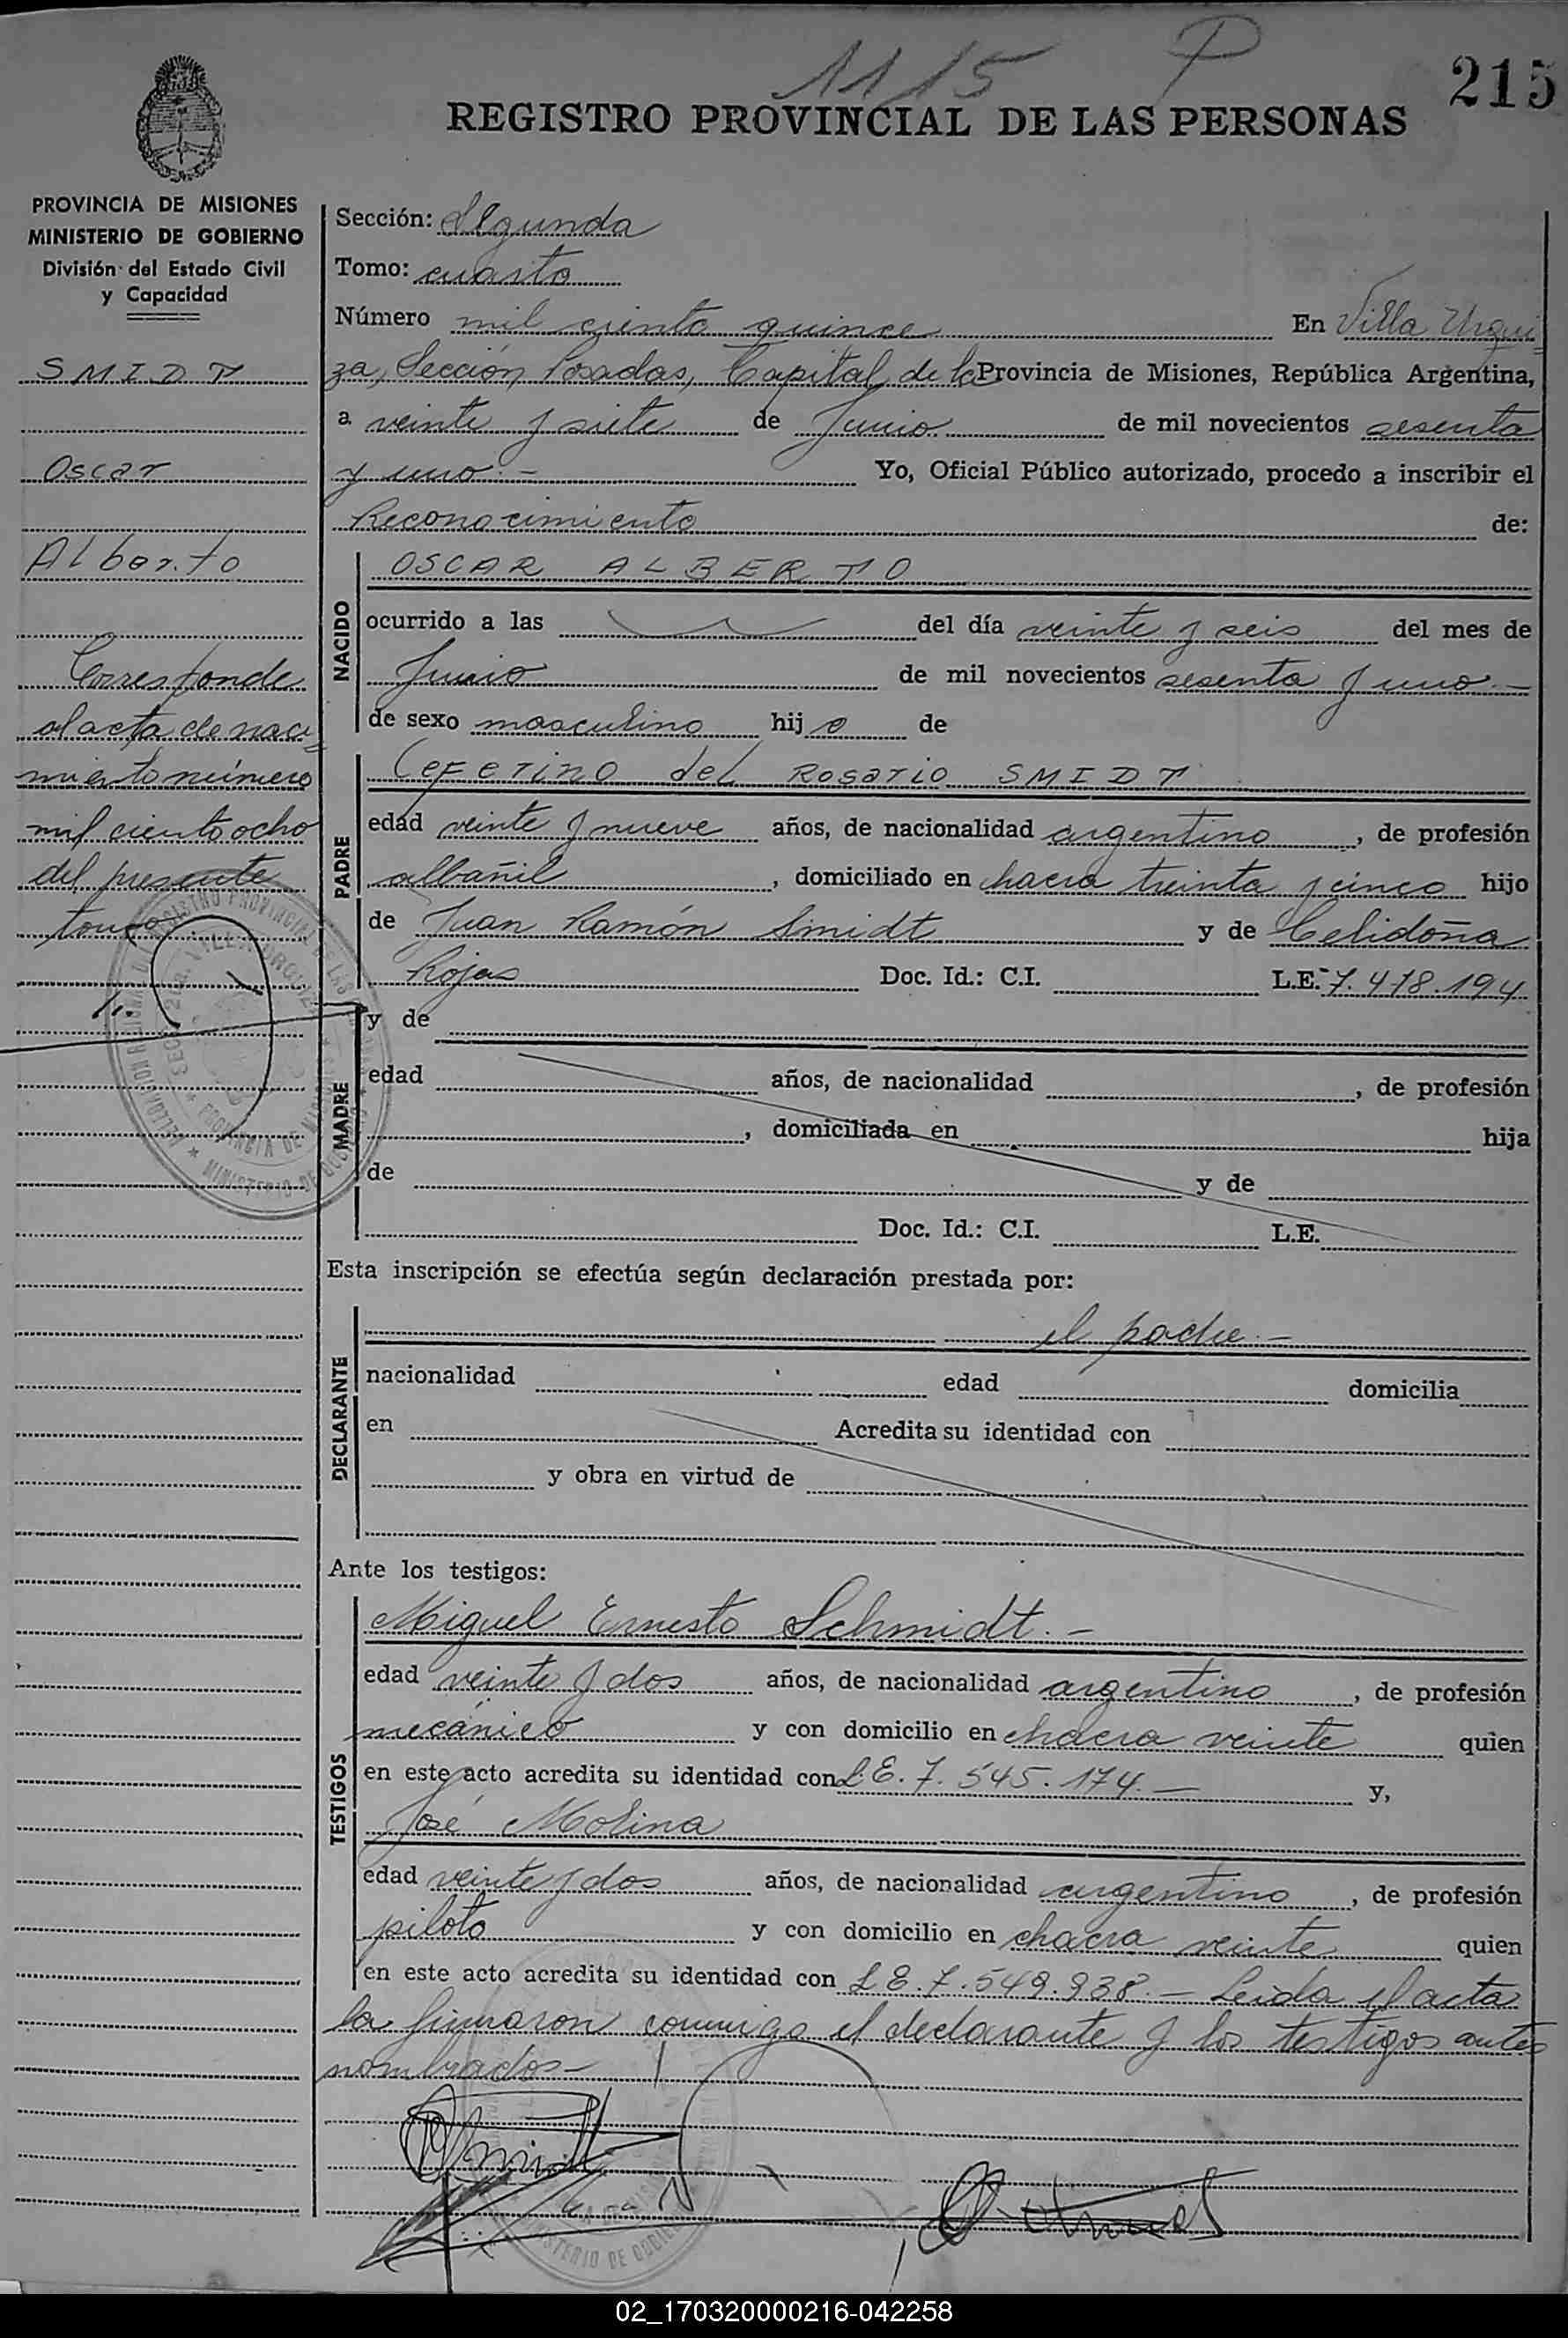 1115 P 215
REGISTRO PROVINCIAL DE LAS PERSONAS
PROVINCIA DE MISIONES
MINISTERIO DE GOBIERNO
División del Estado Civil
y Capacidad
SMIDT
Oscar
Alberto
Corresponde
al acta de naci-
miento número
mil ciento ocho
del presente
tomo
Sección: Segunda
Tomo: cuarto
Número mil ciento quince En Villa Urqui-
za, Sección Posadas, Capital de la Provincia de Misiones, República Argentina,
a veinte y siete de Junio de mil novecientos sesenta
y uno.- Yo, Oficial Público autorizado, procedo a inscribir el
Reconocimiento de:
NACIDO
OSCAR ALBERTO
ocurrido a las del día veinte y seis del mes de
Junio de mil novecientos sesenta y uno.-
de sexo masculino hijo de
PADRE
Ceferino del Rosario SMIDT
edad veinte y nueve años, de nacionalidad argentino, de profesión
albañil, domiciliado en chacra treinta y cinco hijo
de Juan Ramón Smidt y de Celidoña
Rojas Doc. Id.: C.I. L.E. 7.478.194
MADRE
y de
edad años, de nacionalidad , de profesión
, domiciliada en hija
de y de
Doc. Id.: C.I. L.E.
Esta inscripción se efectúa según declaración prestada por:
DECLARANTE
el padre.-
nacionalidad edad domicilia
en Acredita su identidad con
y obra en virtud de
Ante los testigos:
TESTIGOS
Miguel Ernesto Schmidt.-
edad veinte y dos años, de nacionalidad argentino, de profesión
mecánico y con domicilio en chacra veinte quien
en este acto acredita su identidad con L.E. 7.545.174.- y,
José Molina
edad veinte y dos años, de nacionalidad argentino, de profesión
piloto y con domicilio en chacra veinte quien
en este acto acredita su identidad con L.E. 7.549.938.- Leida el acta
la firmaron conmigo el declarante y los testigos antes
nombrados-
02_170320000216-042258